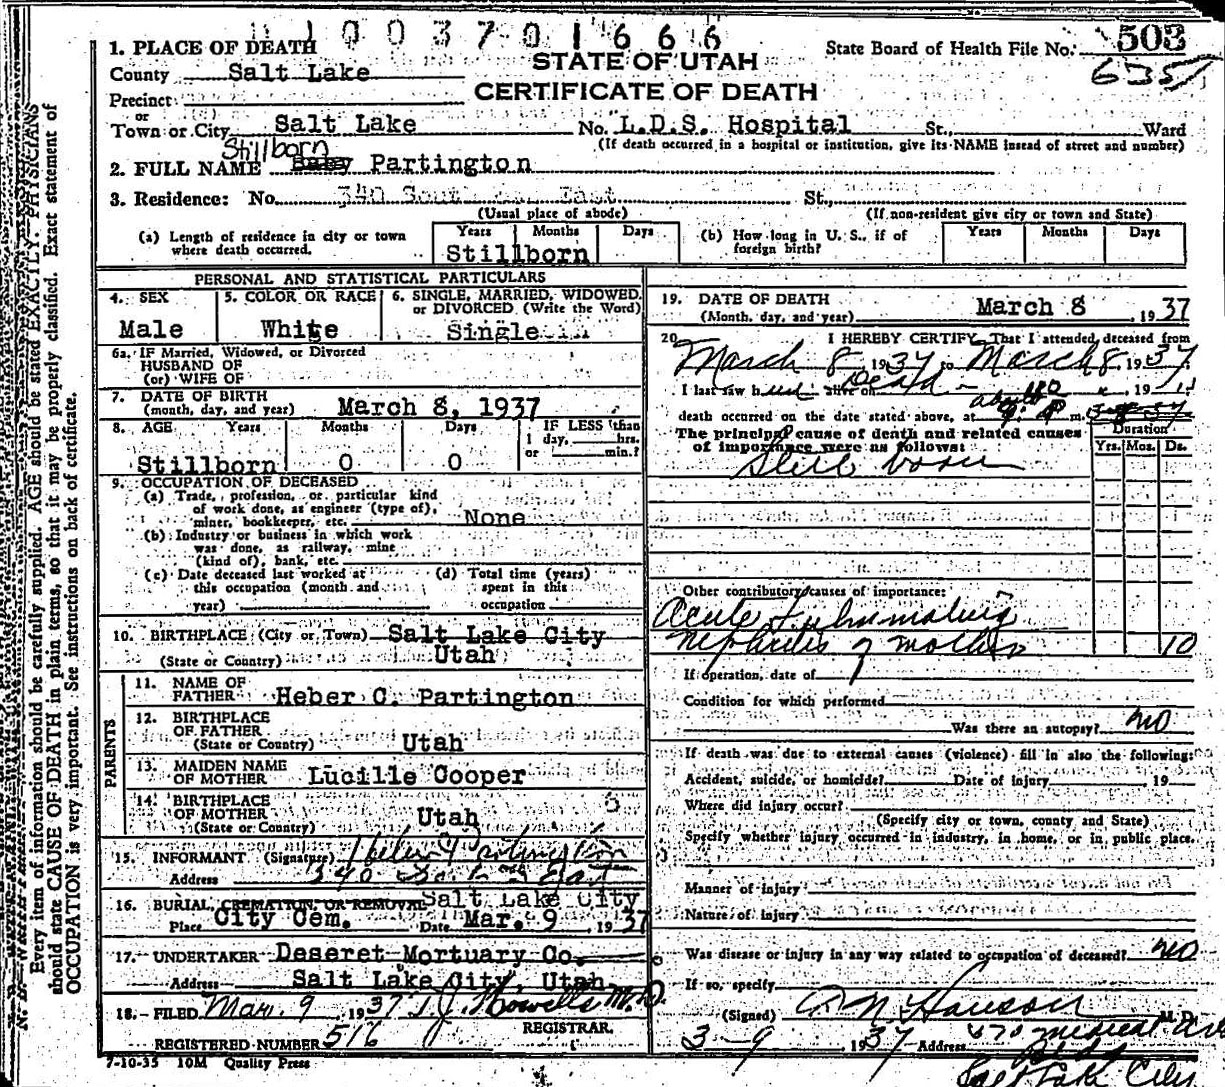 1003701666
1. PLACE OF DEATH
STATE OF UTAH
CERTIFICATE OF DEATH
State Board of Health File No. 503
635
County Salt Lake
Precinct
or
Town or City Salt Lake No. L.D.S. Hospital St., Ward
(If death occurred in a hospital or institution, give its NAME instead of street and number)
Stillborn
2. FULL NAME Baby Partington
3. Residence: No. 340 South East St.,
(Usual place of abode) (If non-resident give city or town and State)
(a) Length of residence in city or town where death occurred. Years Months Days
Stillborn
(b) How long in U. S., if of foreign birth? Years Months Days
PERSONAL AND STATISTICAL PARTICULARS
4. SEX 5. COLOR OR RACE 6. SINGLE, MARRIED, WIDOWED, or DIVORCED (Write the Word)
Male White Single
6a. IF Married, Widowed, or Divorced
HUSBAND OF
(or) WIFE OF
7. DATE OF BIRTH
(month, day, and year) March 8, 1937
8. AGE Years Months Days IF LESS than
1 day, hrs.
or min.?
Stillborn 0 0
9. OCCUPATION OF DECEASED
(a) Trade, profession, or particular kind
of work done, as engineer (type of),
miner, bookkeeper, etc. None
(b) Industry or business in which work
was done, as railway, mine
(kind of), bank, etc.
(c) Date deceased last worked at
this occupation (month and
year)
(d) Total time (years)
spent in this
occupation
10. BIRTHPLACE (City or Town) Salt Lake City
(State or Country) Utah
PARENTS
11. NAME OF
FATHER Heber C. Partington
12. BIRTHPLACE
OF FATHER
(State or Country) Utah
13. MAIDEN NAME
OF MOTHER Lucille Cooper
14. BIRTHPLACE
OF MOTHER
(State or Country) Utah
15. INFORMANT (Signature) Heber Partington
Address 340 East
16. BURIAL, CREMATION, OR REMOVAL Salt Lake City
Place City Cem. Date Mar. 9, 1937
17. UNDERTAKER Deseret Mortuary Co.
Address Salt Lake City, Utah
18. FILED Mar. 9 1937 T. J. Howells M.D.
REGISTRAR.
REGISTERED NUMBER 516
7-10-35 10M Quality Press
19. DATE OF DEATH
(Month, day, and year) March 8, 1937
20. I HEREBY CERTIFY, That I attended deceased from
March 8, 1937 to March 8, 1937
I last saw h alive on Dead 19
about
death occurred on the date stated above, at m.
The principal cause of death and related causes
of importance were as follows:
Duration
Yrs. Mos. Ds.
Still born
Other contributory causes of importance:
Acute
nephritis of mother 10
If operation, date of
Condition for which performed
Was there an autopsy? no
If death was due to external causes (violence) fill in also the following:
Accident, suicide, or homicide? Date of injury 19
Where did injury occur?
(Specify city or town, county and State)
Specify whether injury occurred in industry, in home, or in public place.
Manner of injury
Nature of injury
Was disease or injury in any way related to occupation of deceased? no
If so, specify
(Signed) Hanson M.D.
3-9 1937 Address 670 Medical Arts
Bldg
Salt Lake City
Every item of information should be carefully supplied. AGE should be stated EXACTLY. PHYSICIANS
should state CAUSE OF DEATH in plain terms, so that it may be properly classified. Exact statement of
OCCUPATION is very important. See instructions on back of certificate.